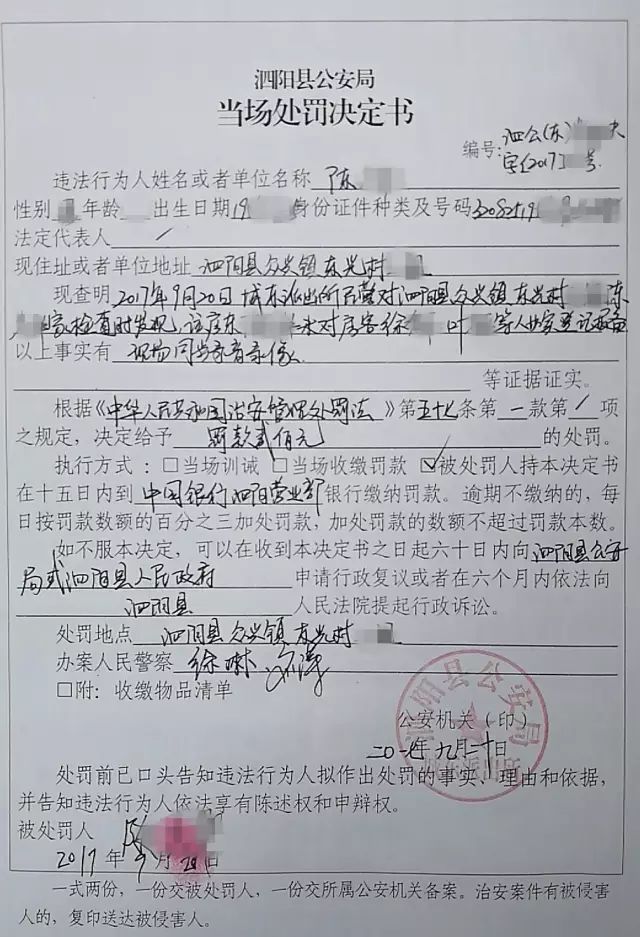 泗阳县公安局
当场处罚决定书
编号:泗公(东) 决
字[2017] 号
违法行为人姓名或者单位名称 陈
性别 年龄 出生日期 19 身份证件种类及号码
法定代表人 /
现住址或者单位地址 泗阳县众兴镇东光村
现查明 2017年9月20日 城东派出所民警对泗阳县众兴镇东光村 陈
家检查时发现,该房东 未对房客徐 叶 等人
以上事实有 现场同步录音录像
等证据证实。
根据《中华人民共和国治安管理处罚法》第五十七条第一款第/项
之规定,决定给予 罚款贰佰元 的处罚。
执行方式:□当场训诫 □当场收缴罚款 ☑被处罚人持本决定书
在十五日内到 中国银行泗阳营业部 银行缴纳罚款。逾期不缴纳的,每
日按罚款数额的百分之三加处罚款,加处罚款的数额不超过罚款本数。
如不服本决定,可以在收到本决定书之日起六十日内向 泗阳县公安
局或泗阳县人民政府 申请行政复议或者在六个月内依法向
泗阳县 人民法院提起行政诉讼。
处罚地点 泗阳县众兴镇东光村
办案人民警察 徐琳
□附:收缴物品清单
泗阳县公安局
公安机关(印)
二〇一七年九月二十日
处罚前已口头告知违法行为人拟作出处罚的事实、理由和依据,
并告知违法行为人依法享有陈述权和申辩权。
被处罚人 陈
2017年9月20日
一式两份,一份交被处罚人,一份交所属公安机关备案。治安案件有被侵害
人的,复印送达被侵害人。